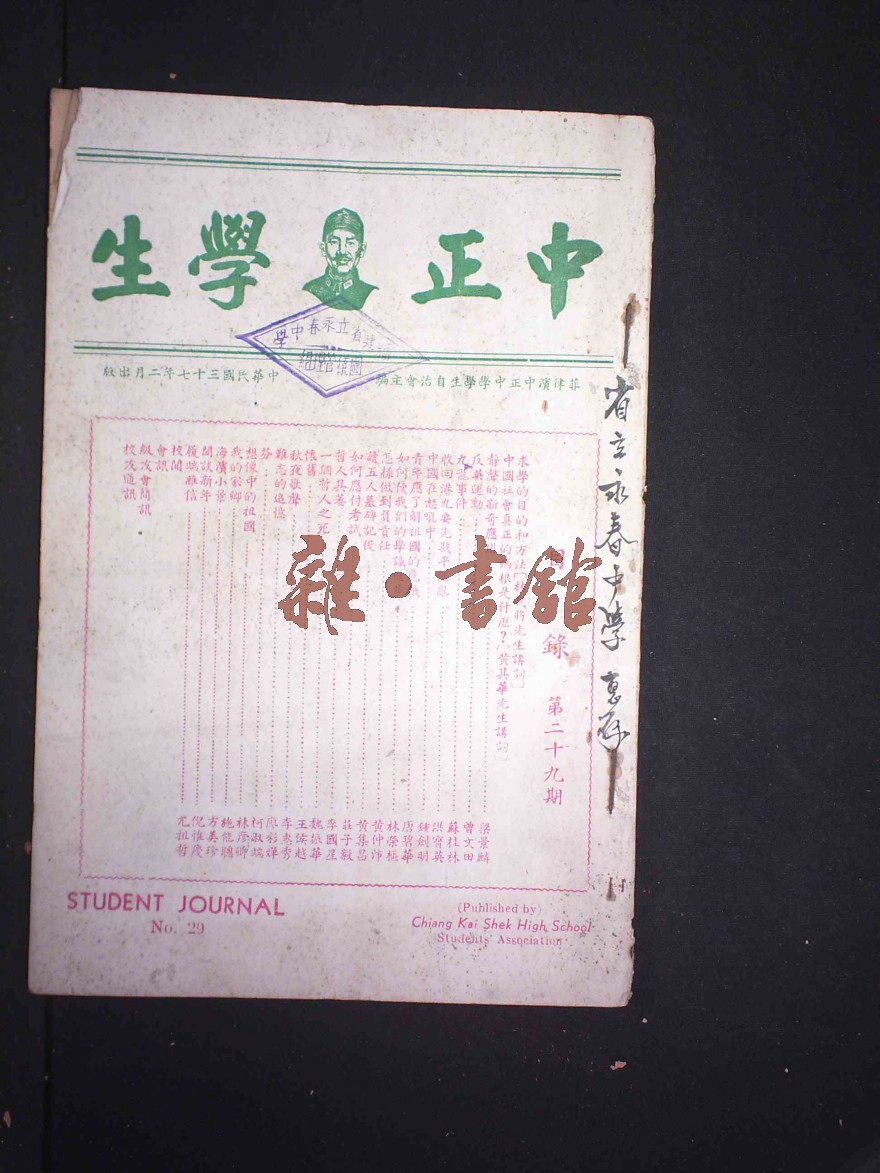 中正學生
中華民國三十七年二月出版
菲律濱中正中學學生自治會主編
省立永春中學 惠存
福建省立永春中學
錄
第二十九期
求學的目的和方法
中國社會眞正的病根是什麽？〔黃其華先生講詞〕
反英運動
九龍事件
中國在怒吼中
靑年應了解祖國的
如何使我們的學識
怎樣做到負責任
讀五人墓碑記後
如何應付考試
哲人其萎
一個哲人之死
懷舊
秋夜歌聲
難忘的追憶
芬
想像中的祖國
我的家鄉
海濱小景
閒談新年
校聞
會訊
級友會簡訊
校友通訊
梁景麟
曾文田
蘇桂林
洪寶英
鍾劍明
唐碧華
林榮樞
黃仲沛
黃集昌
莊子毅
李國星
魏振華
王侯趙
李惠秀
廖彩嬋
柯淑端
林彥卿
施能聰
方美珍
倪惟慶
尤祖哲
雜·書館
STUDENT JOURNAL
No. 29
(Published by)
Chiang Kai Shek High School
Students' Association